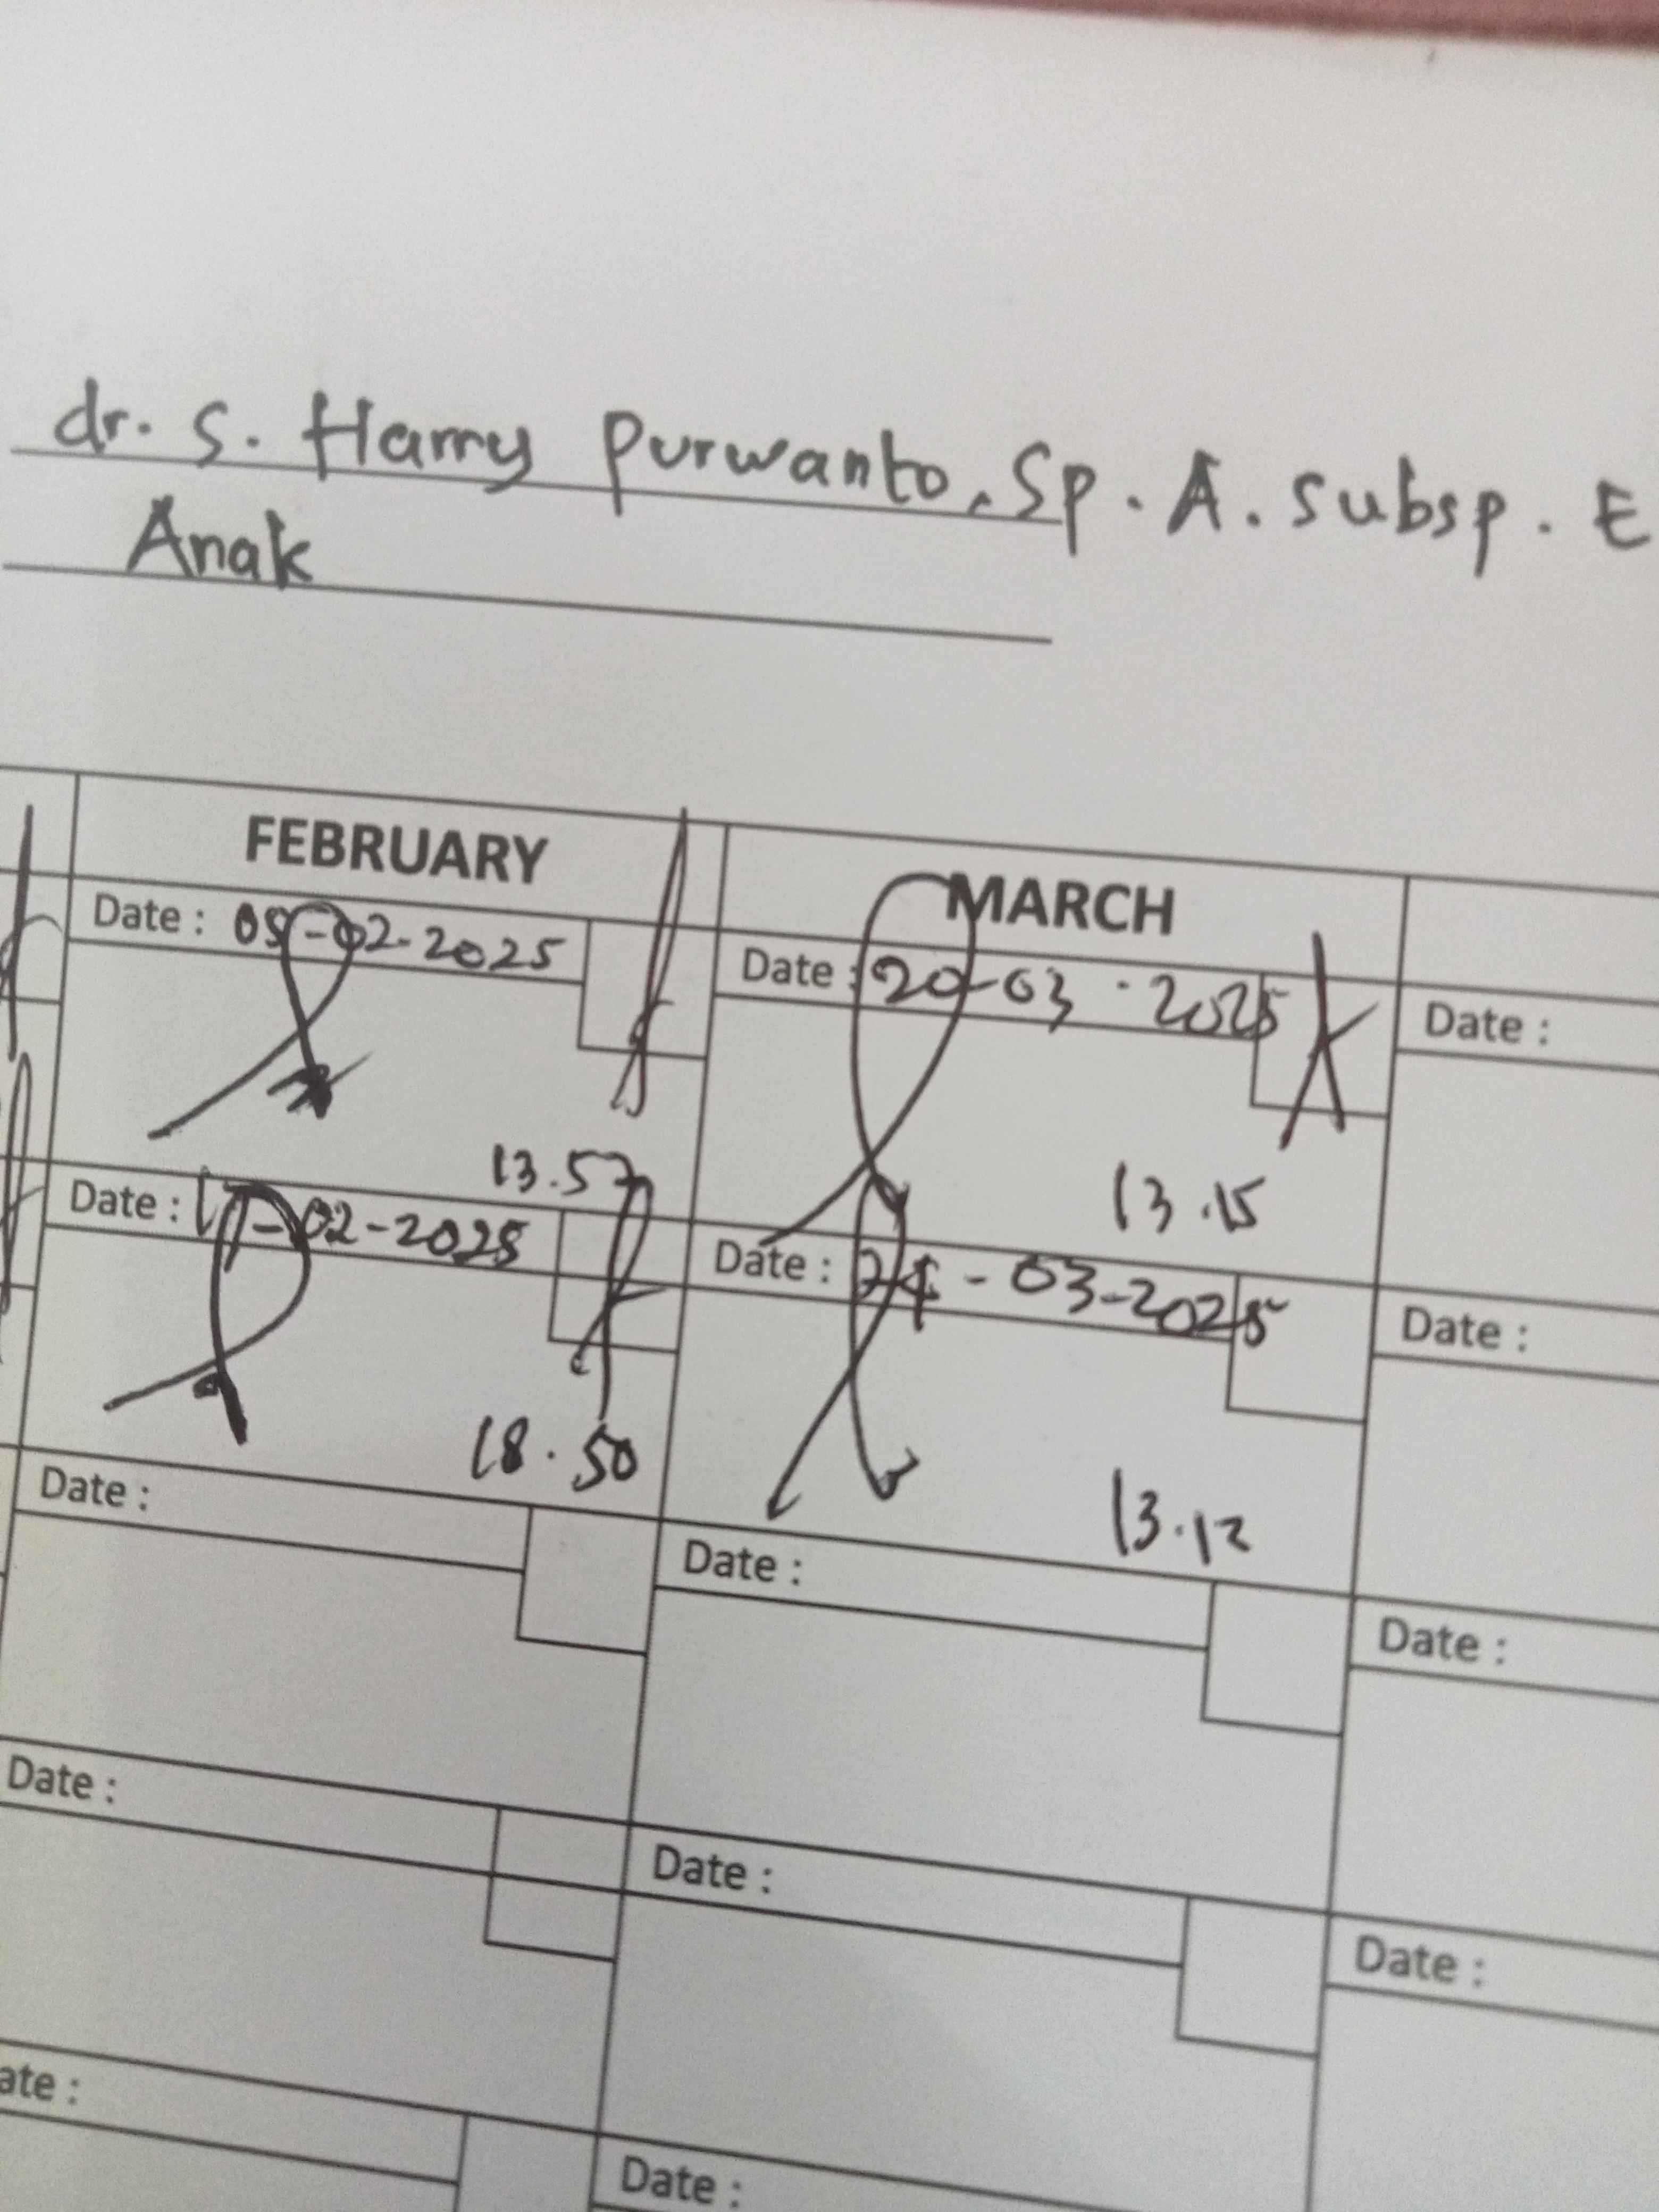 dr. S. Harry Purwanto, Sp. A. Subsp. E
Anak
FEBRUARY
MARCH
Date : 05-02-2025
Date : 20-03-2025
Date :
13.57
13.15
Date : 17-02-2025
Date : 24-03-2025
Date :
18.50
13.12
Date :
Date :
Date :
Date :
Date :
Date :
ate :
Date :